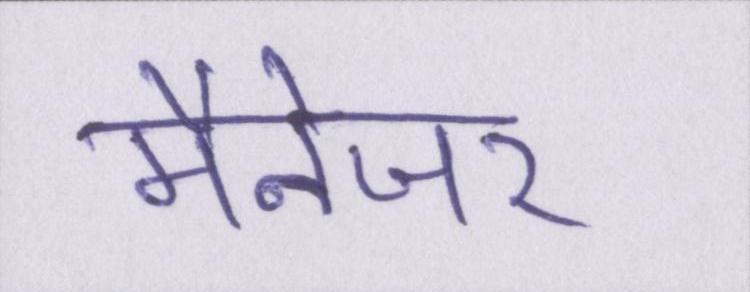 मैनेजर